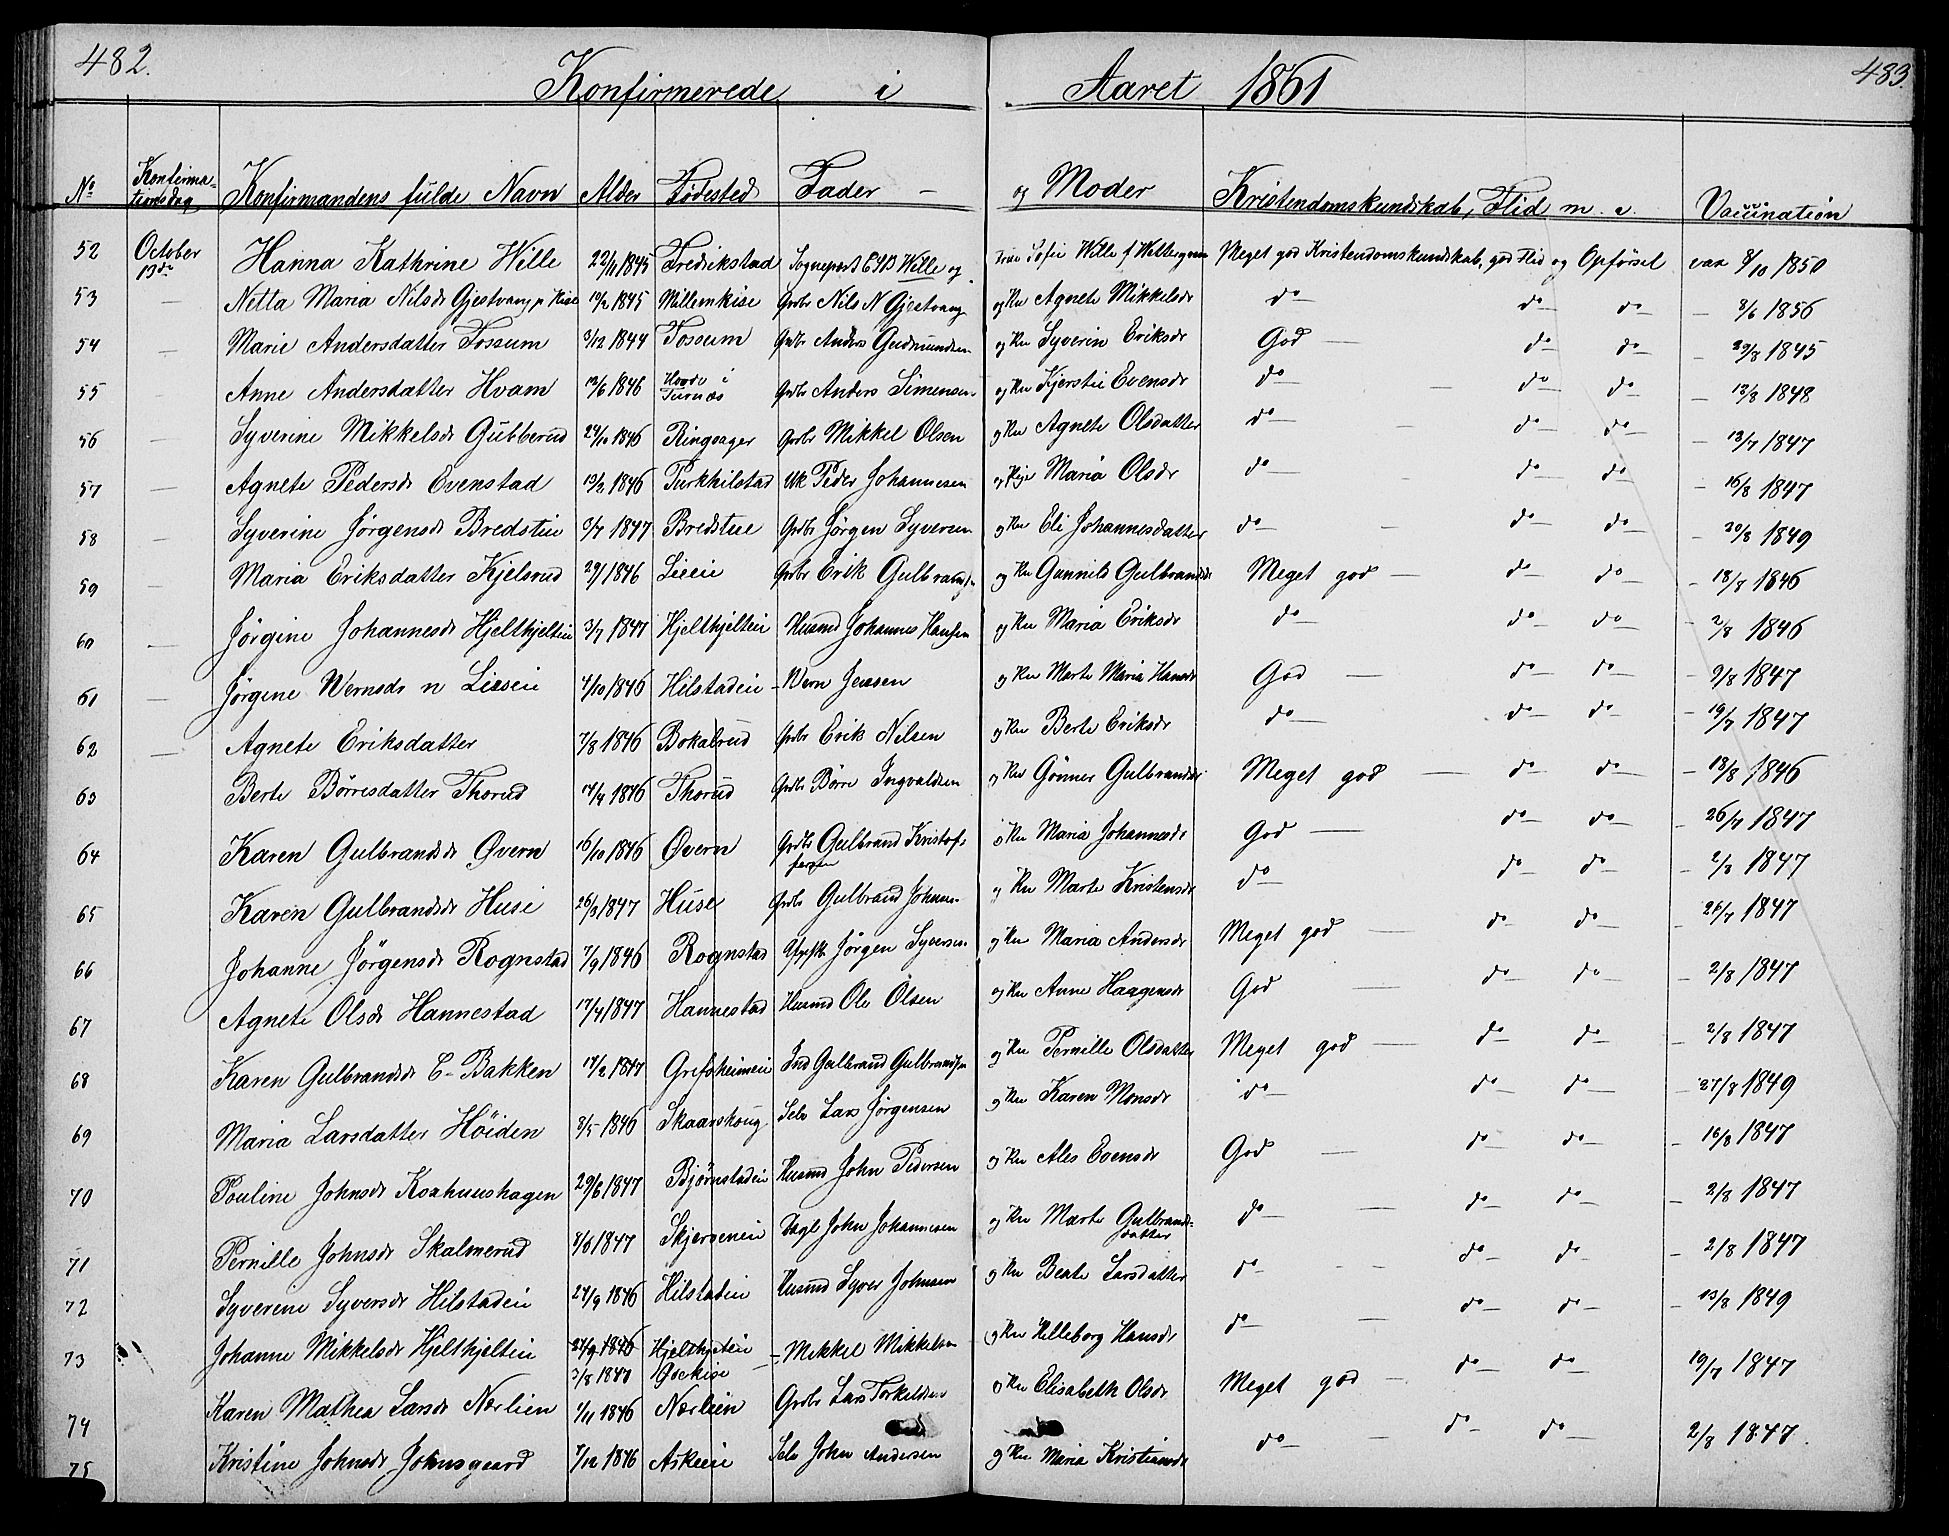 482. 483.
Konfirmerede i Aaret 1861
No Konfirmationsdag Konfirmandens fulde Navn Alder Fødested Fader og Moder Kristendomskundskab, Flid m. v. Vaccination
52 October 13de Hanna Kathrine Wille 22/11 1845 Fredrikstad Sogneprest Wille og Sofie Wille f Meget god Kristendomskundskab, god Flid og Opførsel vax 8/10 1850
53 — Netta Maria Nilsdr Gjestvang p Kise 1845 Mellemkise Grdbr Nils N Gjestvang og Kn Agnete Mikkelsdr do — do — do — — 8/6 1856
54 — Marie Andersdatter Fossum 3/12 1844 Fossum Grdbr Anders Gudmundsen og Kn Syverin Eriksdr God — do — do — — 29/8 1845
55 — Anne Andersdatter Hvam 12/6 1846 i Furnæs Grdbr Anders Simensen og Kn Kjerstie Evensdr do — — do — do — — 13/8 1848
56 — Syverine Mikkelsdr Gubberud 24/10 1846 Ringsager Grdbr Mikkel Olsen og Kn Agnete Olsdatter do — — do — do — — 13/7 1847
57 — Agnete Pedersdr Evenstad 13/2 1846 Purkhilstad Uk Peder Johannesen og Pige Maria Olsdr do — — do — do — — 16/8 1847
58 — Syverine Jørgensdr Bredstue 3/7 1847 Bredstue Grdbr Jørgen Syversen og Kn Eli Johannesdatter do — — do — do — — 20/8 1849
59 — Maria Eriksdatter Kjelsrud 29/1 1846 Lieeie Grdbr Erik Gulbrandsn og Kn Gunnild Gulbrandsdr Meget god — do — do — — 18/8 1846
60 — Jørgine Johannesdr Hjelthjelteie 3/7 1847 Hjelthjelteie Husmd Johannes Hansen og Kn Maria Eriksdr do — do — do — — 2/8 1846
61 — Jørgine Wernsdr n Lieeie 4/10 1846 Hilstadeie — Wern Jensen og Kn Marte Maria Hansdr God — do — do — — 9/8 1847
62 — Agnete Eriksdatter 7/8 1846 Bokalrud Grdbr Erik Nilsen og Kn Berte Eriksdr do — do — do — — 19/7 1847
63 Berte Børresdatter Thorud 1846 Thorud Grdbr Børre Ingvaldsen og Kn Gunner Gulbrandsdr Meget god — do — do — — 18/8 1846
64 Karen Gulbrandsdr Øvern 16/10 1846 Øvern Grdbr Gulbrand Kristoffersen og Kn Maria Johannesdr God — do — do — — 26/7 1847
65 Karen Gulbrandsdr Huse 26/3 1847 Huse Grdbr Gulbrand Johnsn og Kn Marte Kristensdr do — do — do — — 2/8 1847
66 Johanne Jørgensdr Rognstad 7/9 1846 Rognstad Jørgen Syversn og Kn Maria Andersdr Meget god — do — do — — 26/7 1847
67 Agnete Olsdr Hannestad 17/4 1847 Hannestad Husmd Ole Olsen og Kn Anne Haagensdr God — do — do — — 2/8 1847
68 Karen Gulbrandsdr E-Bakken 14/2 1847 Grefsheimeie Ind Gulbrand Gulbrandsn og Kn Pernille Olsdatter Meget god — do — do — — 2/8 1847
69 Maria Larsdatter Høiden 3/5 1846 Skaarskoug Selv Lars Jørgensen og Kn Karen Monsdr do — do — do — — 27/8 1849
70 Pouline Johnsdr Koxhuushagen 29/6 1847 Bjørnstadeie Husmd John Pedersen og Kn Ales Evensdr God — do — do — — 16/8 1847
71 Pernille Johnsdr Skalmerud 8/6 1847 Skjerveneie Dagl John Johannesen og Kn Marte Gulbrandsdatter do — — do — do — — 2/8 1847
72 Syverene Syversdr Hilstadeie 24/9 1846 Hilstadeie Husmd Syver Johnsen og Kn Beate Larsdatter do — — do — do — — 2/8 1847
73 Johanne Mikkelsdr Hjelthjelteie 24/9 1846 3/8 1847 Hjelthjelteie Gockise — Mikkel Mikkelsen og Kn Helleborg Hansdr do — — do — do — — 13/8 1849
74 Karen Mathea Larsdr Nærlien 1/11 1846 Nærlien Grdbr Lars Torkeldsen og Kn Elisabeth Olsdr Meget god — do — do — 19/7 1847
75 Kristine Johnsdr Johnsgaard 7/12 1846 Askeeie Selv John Andersen og Kn Maria Kristiansdr do — — do — do — 2/8 1847.